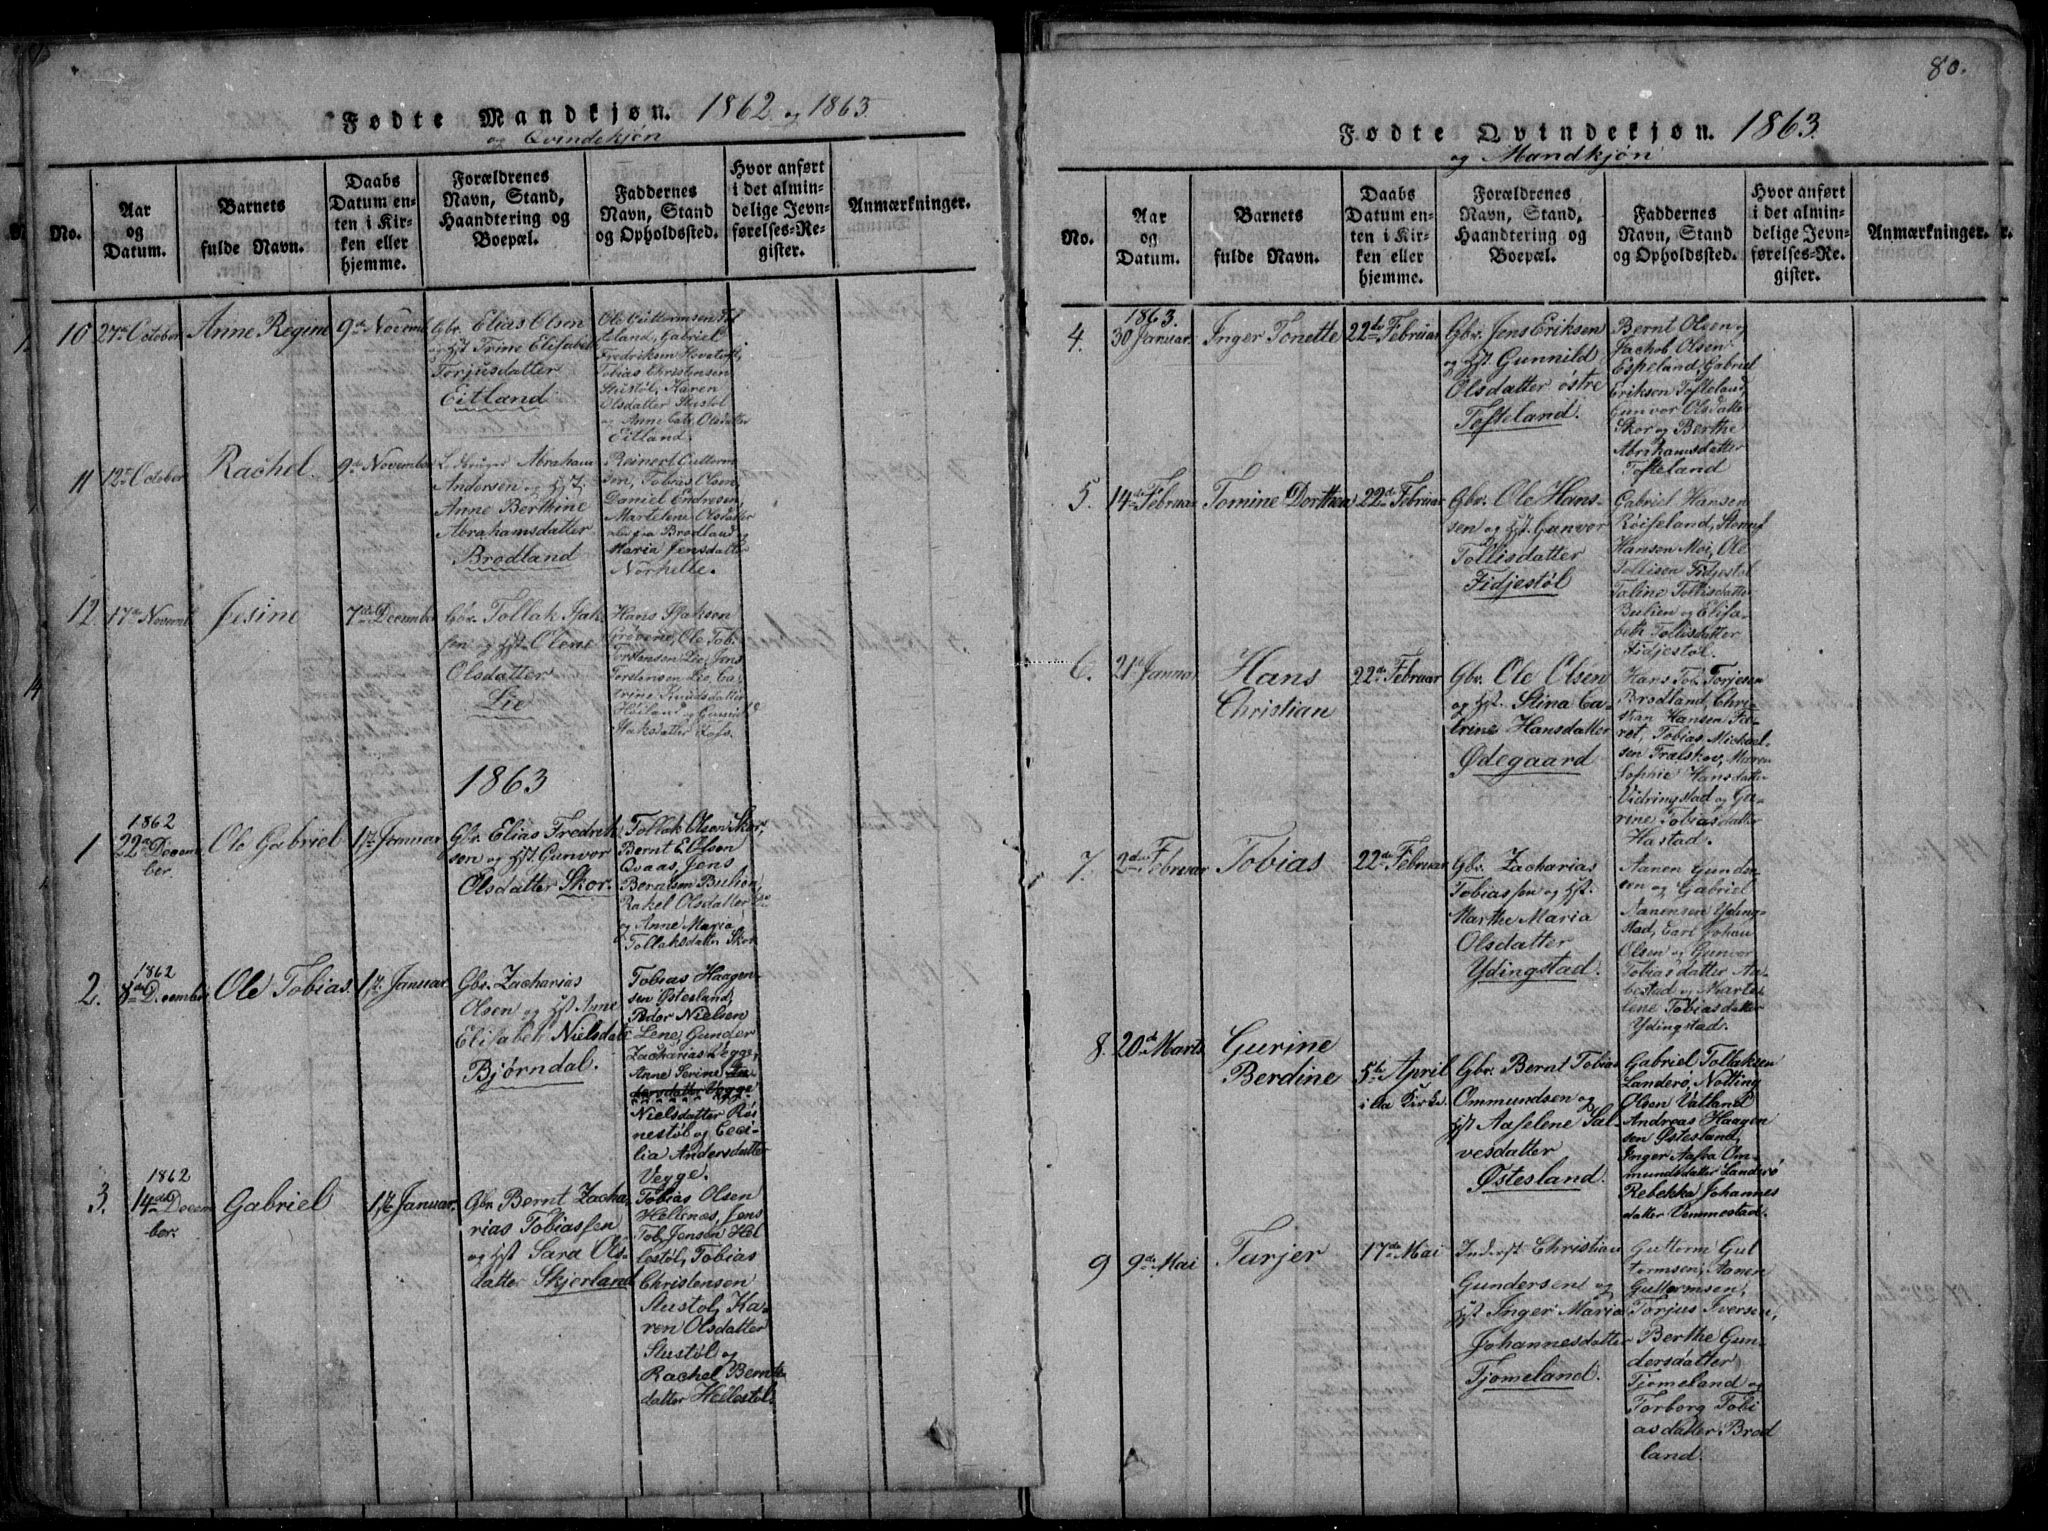 Fødte Mandkjøn. 1862 og 1863
og Qvindekjøn
No.
Aar
og
Datum.
Barnets
fulde Navn.
Daabs
Datum en-
ten i Kir-
ken eller
hjemme.
Forældrenes
Navn, Stand,
Haandtering og
Boepæl.
Faddernes
Navn, Stand
og Opholdssted.
Hvor anført
i det almin-
delige Jevn-
førelses-Re-
gister.
Anmærkninger.
10
27de October
Anne Regine
9de Novemb.
Gbr. Elias Olsen
og Hst Trine Elisabet
Torjusdatter
Eitland
Ole Guttormsen Eit
land, Gabriel
Fredriksen
Tobias Christensen
Stustøl, Karen
Olsdatter Stustøl
og Anne Cath. Olsdatter
Eitland.
11
12te October
Rachel
9de November
Abraham
Andersen og Hst
Anne Berthine
Abrahamsdatter
Brødland
Reinert Guttorm
sen, Tobias Olsen
Daniel Endresen
Martelene Olsdatter
Brødland og
Maria Jensdatter
Norhelle.
12
17de Novemb.
Jesine
7de December
Gbr. Tollak Isak
sen og Hst Olene
Olsdatter
Lie
Hans Isaksen
Ole Tob.
Torstensen Lie, Jens
Torstensen Lie, Ca
trine Knudsdatter
Høiland og Gunild
Isaksdatter
1863
1
1862
22de Decem
ber.
Ole Gabriel
1te Januar
Gbr. Elias Fredrik
sen og Hst Gunvor
Olsdatter Skor.
Tollak Olsen Skor,
Bernt E Olsen
Qvaas, Jens
Berntsen Buhien,
Rakel Olsdatter
og Anne Maria
Tollaksdatter Skor
2.
1862
8de December
Ole Tobias.
1te Januar.
Gbr. Zacharias
Olsen og Hst Anne
Elisabeth Nielsdatt
Bjørndal.
Tobias Haagen-
sen Østesland,
Peder Nielsen
Lene, Gunder
Zacharias Vegge,
Anne Serine
Vegge
Nielsdatter Røs
nestøl og Ceci-
lia Andersdatter
Vegge.
3.
1862
14de Decem
ber.
Gabriel
1te Januar.
Gbr. Bernt Zacha
rias Tobiassen
og Hst Sara Ols-
datter Skjerland
Tobias Olsen
Hellenes, Jens
Tob. Jensen Hel
lestøl, Tobias
Christensen
Stustøl, Ka-
ren Olsdatter
Stustøl og
Rachel Bernts
datter Heilestøl.
80.
Fødte Qvindekjøn. 1863.
og Mandkjøn
No.
Aar
og
Datum.
Barnets
fulde Navn.
Daabs
Datum en-
ten i Kir-
ken eller
hjemme.
Forældrenes
Navn, Stand,
Haandtering og
Boepæl.
Faddernes
Navn, Stand
og Opholdssted.
Hvor anført
i det almin-
delige Jevn-
førelses-Re-
gister.
Anmærkninger.
4.
1863.
30 Januar.
Inger Tonette
22de Februar
Gbr. Jens Eriksen
og Hst Gunnild
Olsdatter østre
Tofteland.
Bernt Olsen og
Jachob Olsen
Espeland, Gabriel
Eriksen Tofteland,
Gunvor Olsdatter
Skor og Berthe
Abrahamsdatter
Tofteland
5.
14de Februar
Tomine Dorthea
22de Februar
Gbr. Ole Hans-
sen og Hst. Gunvor
Tollisdatter
Fidjestøl
Gabriel Hansen
Røiseland,
Hansen Moi, Ole
Tollisen Fidjestøl
Taline Tollisdatter
Buhien og Elisa-
beth Tollisdatter
Fidjestøl.
6.
21de Januar
Hans
Christian
22de Februar
Gbr. Ole Olsen
og Hst. Stina Ca-
trine Hansdatter
Ødegaard
Hans Tob. Torjesen
Brødland, Chri-
stian Hansen
Tobias Michael-
sen Trælskor, Maren
Sophie Hansdatter
Vidringstad og Ga-
rine Tobiasdatter
Hastad.
7.
2den Februar
Tobias
22de Februar.
Gbr. Zacharias
Tobiassen og Hst.
Marthe Maria
Olsdatter
Ydingstad.
Aanen Gunder-
sen og Gabriel
Aanensen Yding-
stad, Carl Johan
Olsen og Gunvor
Tobiasdatter Aa-
bestad og Marte-
lene Tobiasdatter
Ydingstad.
8.
20de Marts
Gurine
Berdine
5te April
i Aa Kirke.
Gbr. Bernt Tobias
Ommundsen og
Hst Aaselene Sal-
vesdatter
Østesland.
Gabriel Tollaksen
Landerø, Notting
Olsen Vatland
Andreas Haagen
sen Østesland,
Inger Aasa Om-
mundsdatter Landerø
Rebekka Johannes
datter Vemmestad.
9
9de Mai
Tarjer
17de Mai
Inderst Christian
Gundersen og
Hst Inger Maria
Johannesdatter
Tjomeland.
Guttorm Gut
tormsen, Aanen
Guttormsen,
Torjus Iversen,
Berthe Gun-
dersdatter
Tjomeland og
Torborg Tobi
asdatter Brød
land.